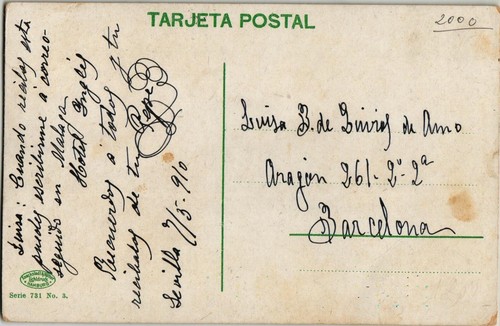 TARJETA POSTAL
2000
Luisa: Cuando recibas esta
puedes escribirme á correo
seguido en Málaga
Hotel Inglés
Recuerdos a todos y tu
recibelos de tu Pepe
Sevilla 7/5-910
Luisa B. de de Amo
Aragón 261-2º-2ª
Barcelona
Serie 731 No. 3.